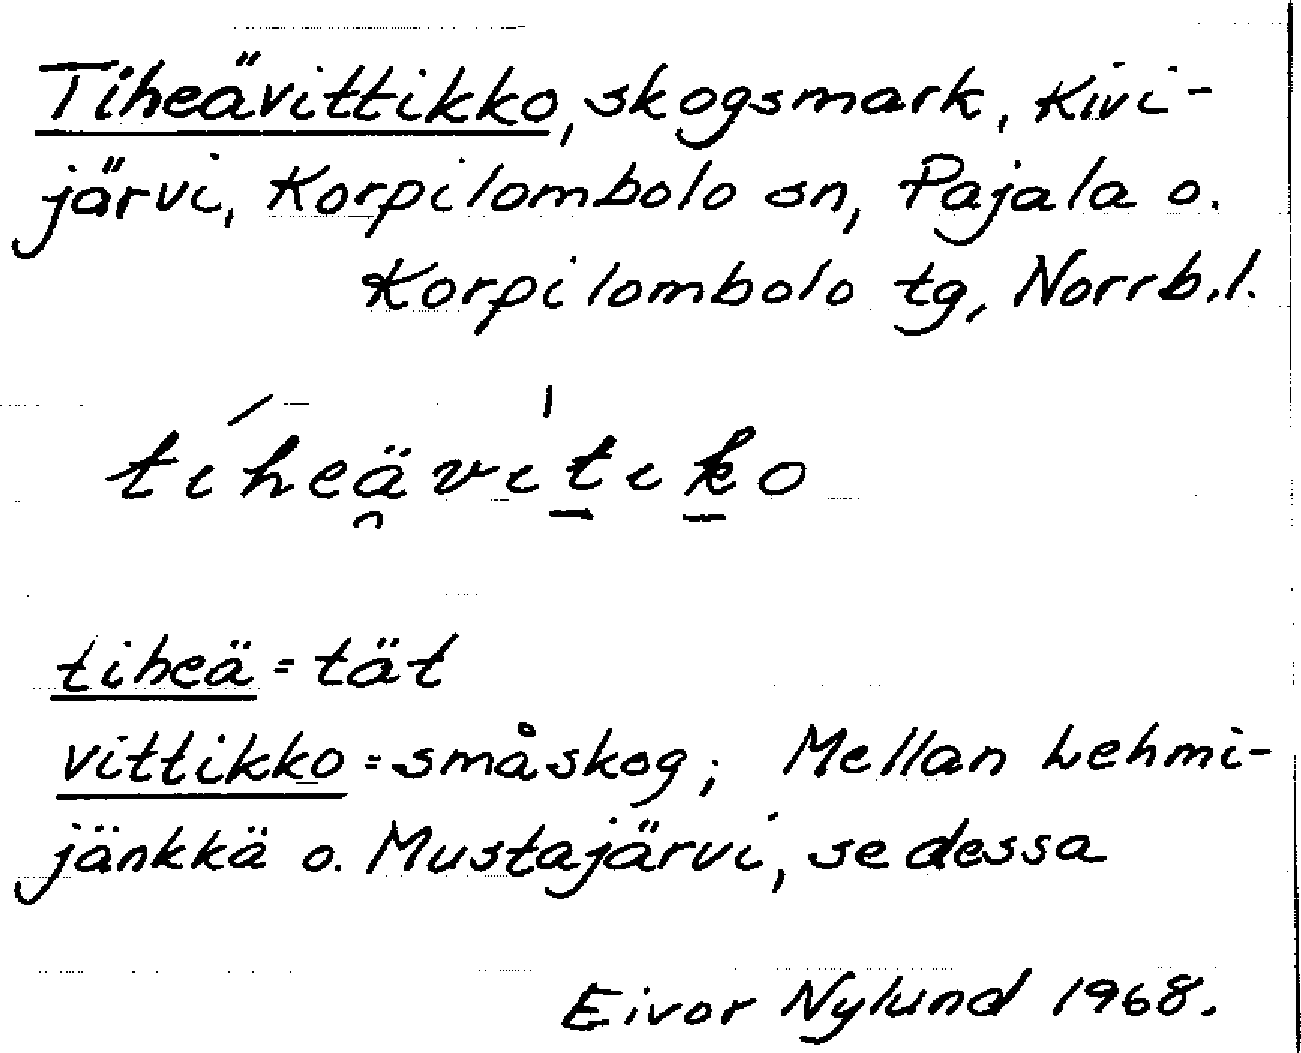 Tiheävittikko, skogsmark, Kivi-
järvi, Korpilombolo sn, Pajala o.
Korpilombolo tg, Norrb.l.
tiheä̯vit̲ik̲o
tiheä = tät
vittikko = småskog; Mellan Lehmi-
jänkkä o. Mustajärvi, se dessa
Eivor Nylund 1968.